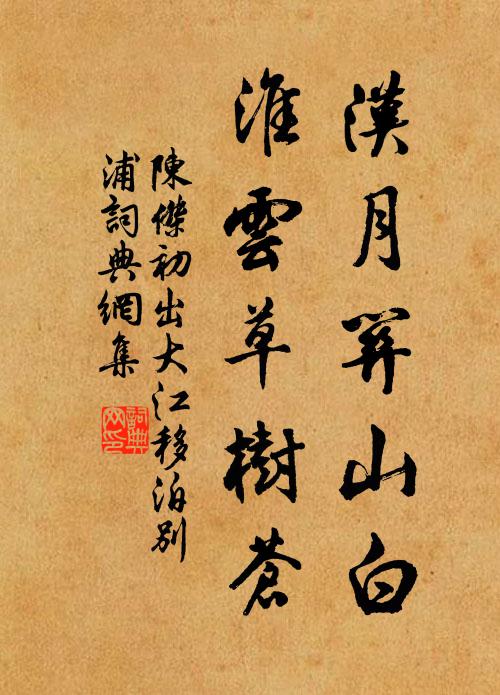 漢月關山白
淮雲草樹蒼
陳傑初出大江移泊別
浦詞典網集
詞典
网印